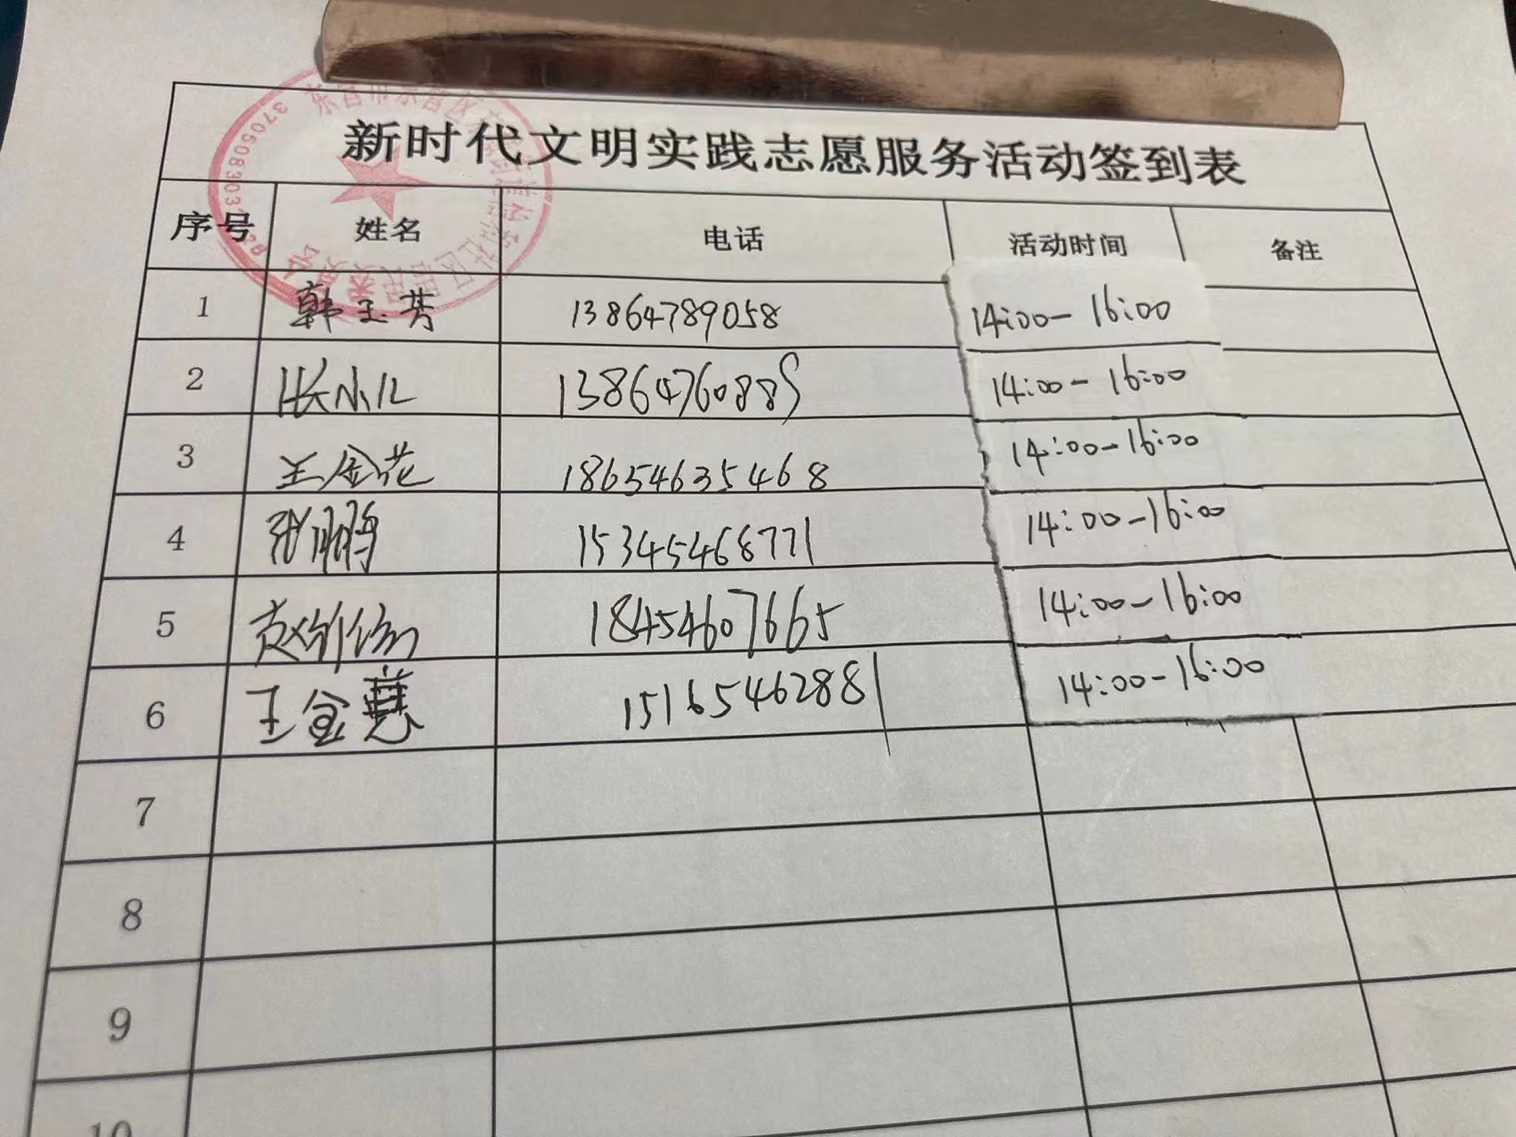 新时代文明实践志愿服务活动签到表
序号 姓名 电话 活动时间 备注
1 韩玉芳 13864789058 14:00-16:00
2 张小儿 13864760885 14:00-16:00
3 王金花 18654635468 14:00-16:00
4 张鹏 15345468771 14:00-16:00
5 赵 18454607665 14:00-16:00
6 王金慧 15165462881 14:00-16:00
7
8
9
10